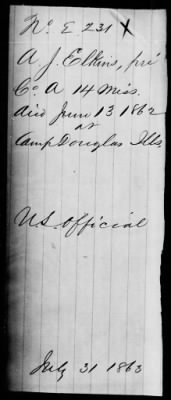 No. E 231 X
A J. Elkins, pri
Co. A 14 Miss.
died June 13 1862
at
Camp Douglas Ills.
U.S. Official
July 31 1863